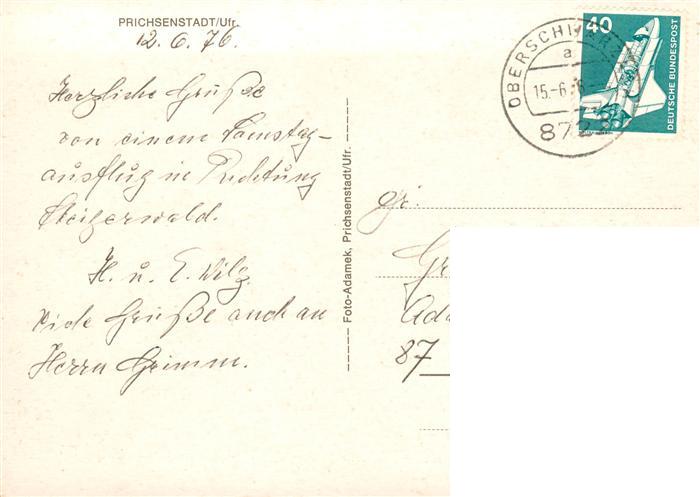 PRICHSENSTADT/Ufr.
12.6.76.
Herzliche Grüße
von einem Samstag-
ausflug in Richtung
Steigerwald.
H. u. E. Wilz.
Viele Grüße auch an
Herrn Grimm.
Foto-Adamek, Prichsenstadt/Ufr.
OBERSCHWARZ
a
15.-6.
872
40
DEUTSCHE BUNDESPOST
Gr
87